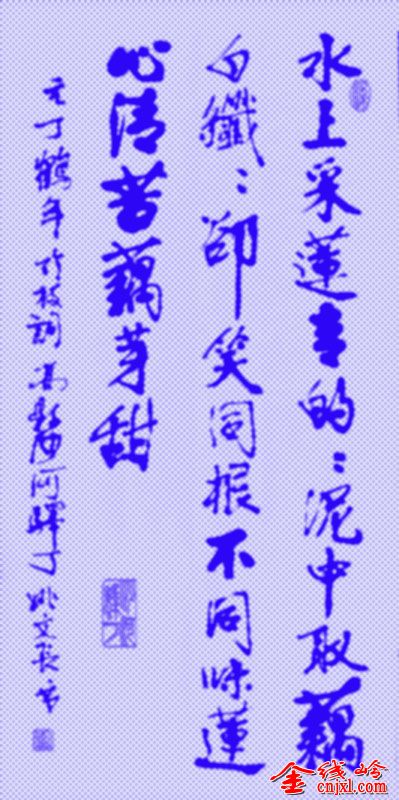 水上采蓮青的〻泥中取藕
白纖〻卻笑同根不同味蓮
心清苦藕芽甜
元丁鶴年竹枝詞 姚文長書
金线岭
cnjxl.com